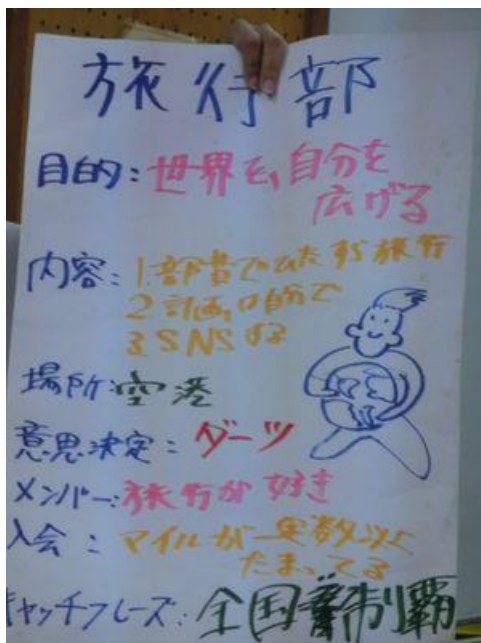 旅行部
目的:世界を、自分を
広げる
内容:1.部費でひたすら旅行
2.計画は自分で
3.SNSする
場所:空港
意思決定:ダーツ
メンバー:旅行が好き
入会:マイルが一定数以上
たまってる
キャッチフレーズ:全国制覇